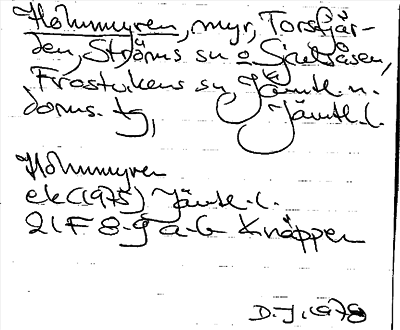 Holmmyren, myr, Torsfjär-
den, Ströms sn o Gubbåsen,
Frostvikens sn, Jämtl. n.
doms. tj, Jämtl. l.
Holmmyren
ek (1975) Jämtl. l.
21F 8-g a-b Knäppen
D.J. 1978